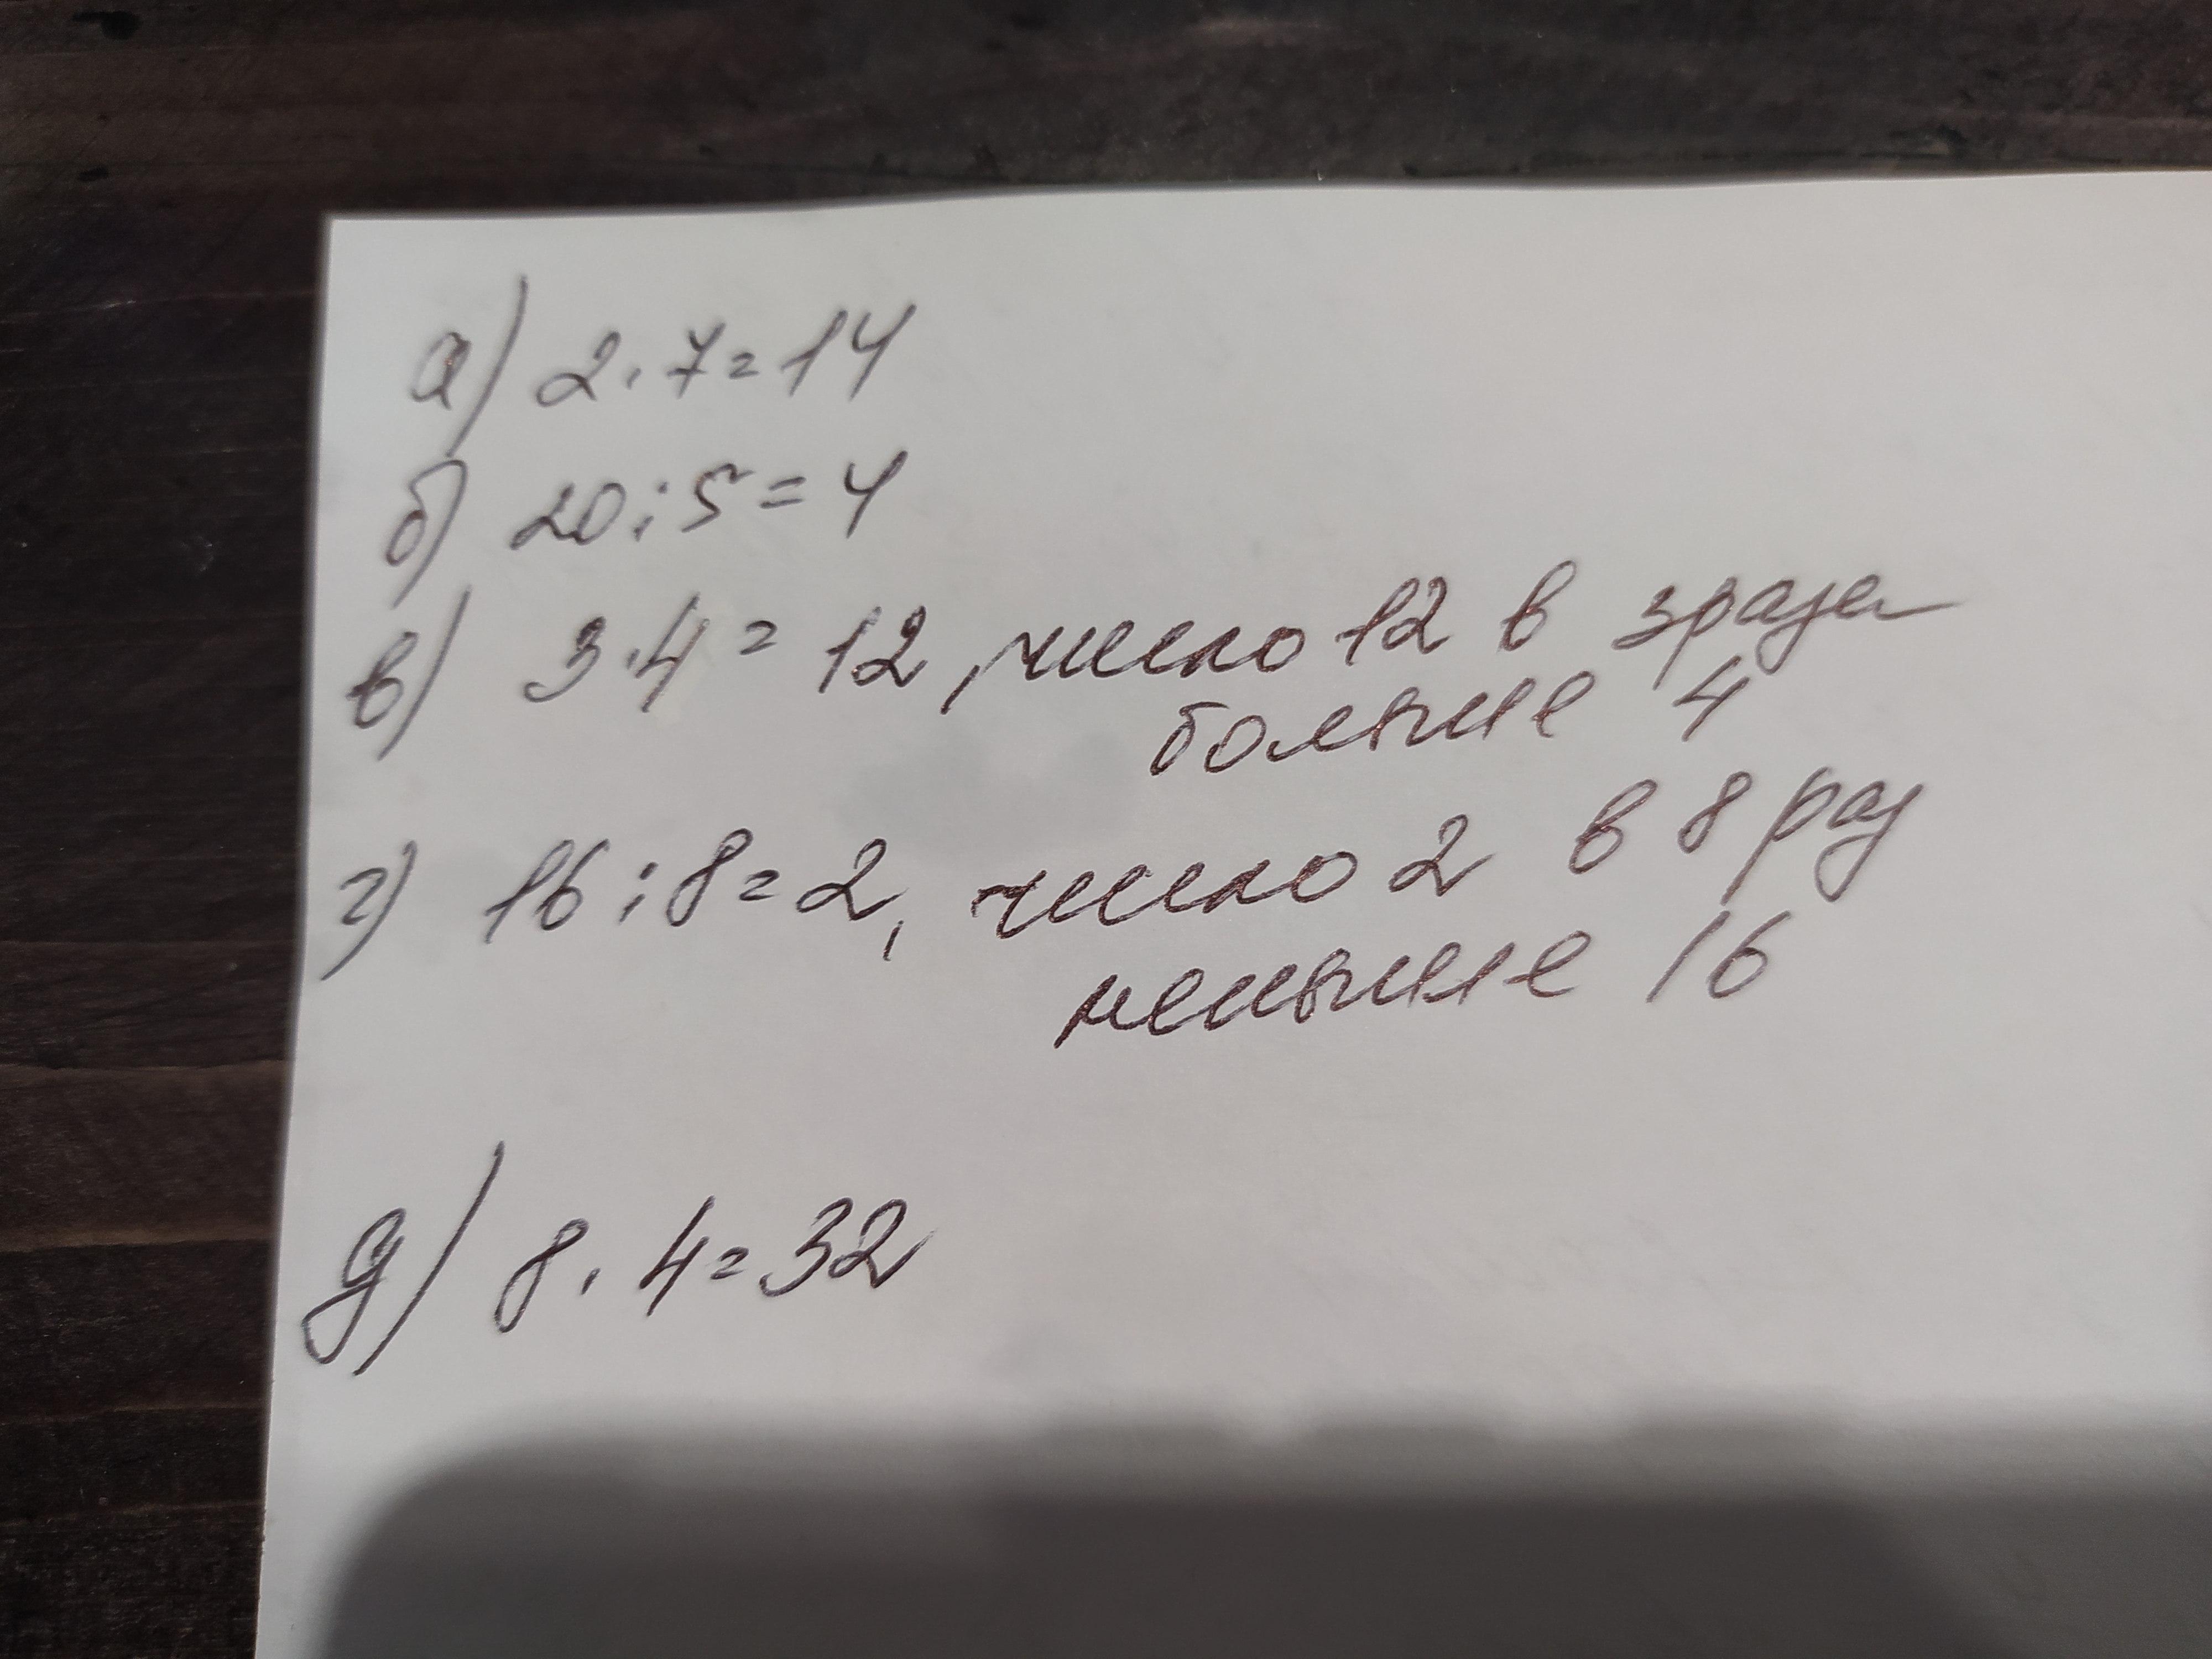 а) 2·7=14
б) 20:5=4
в) 3·4=12, число 12 в 3раза
больше 4
г) 16:8=2, число 2 в 8 раз
меньше 16
д) 8·4=32